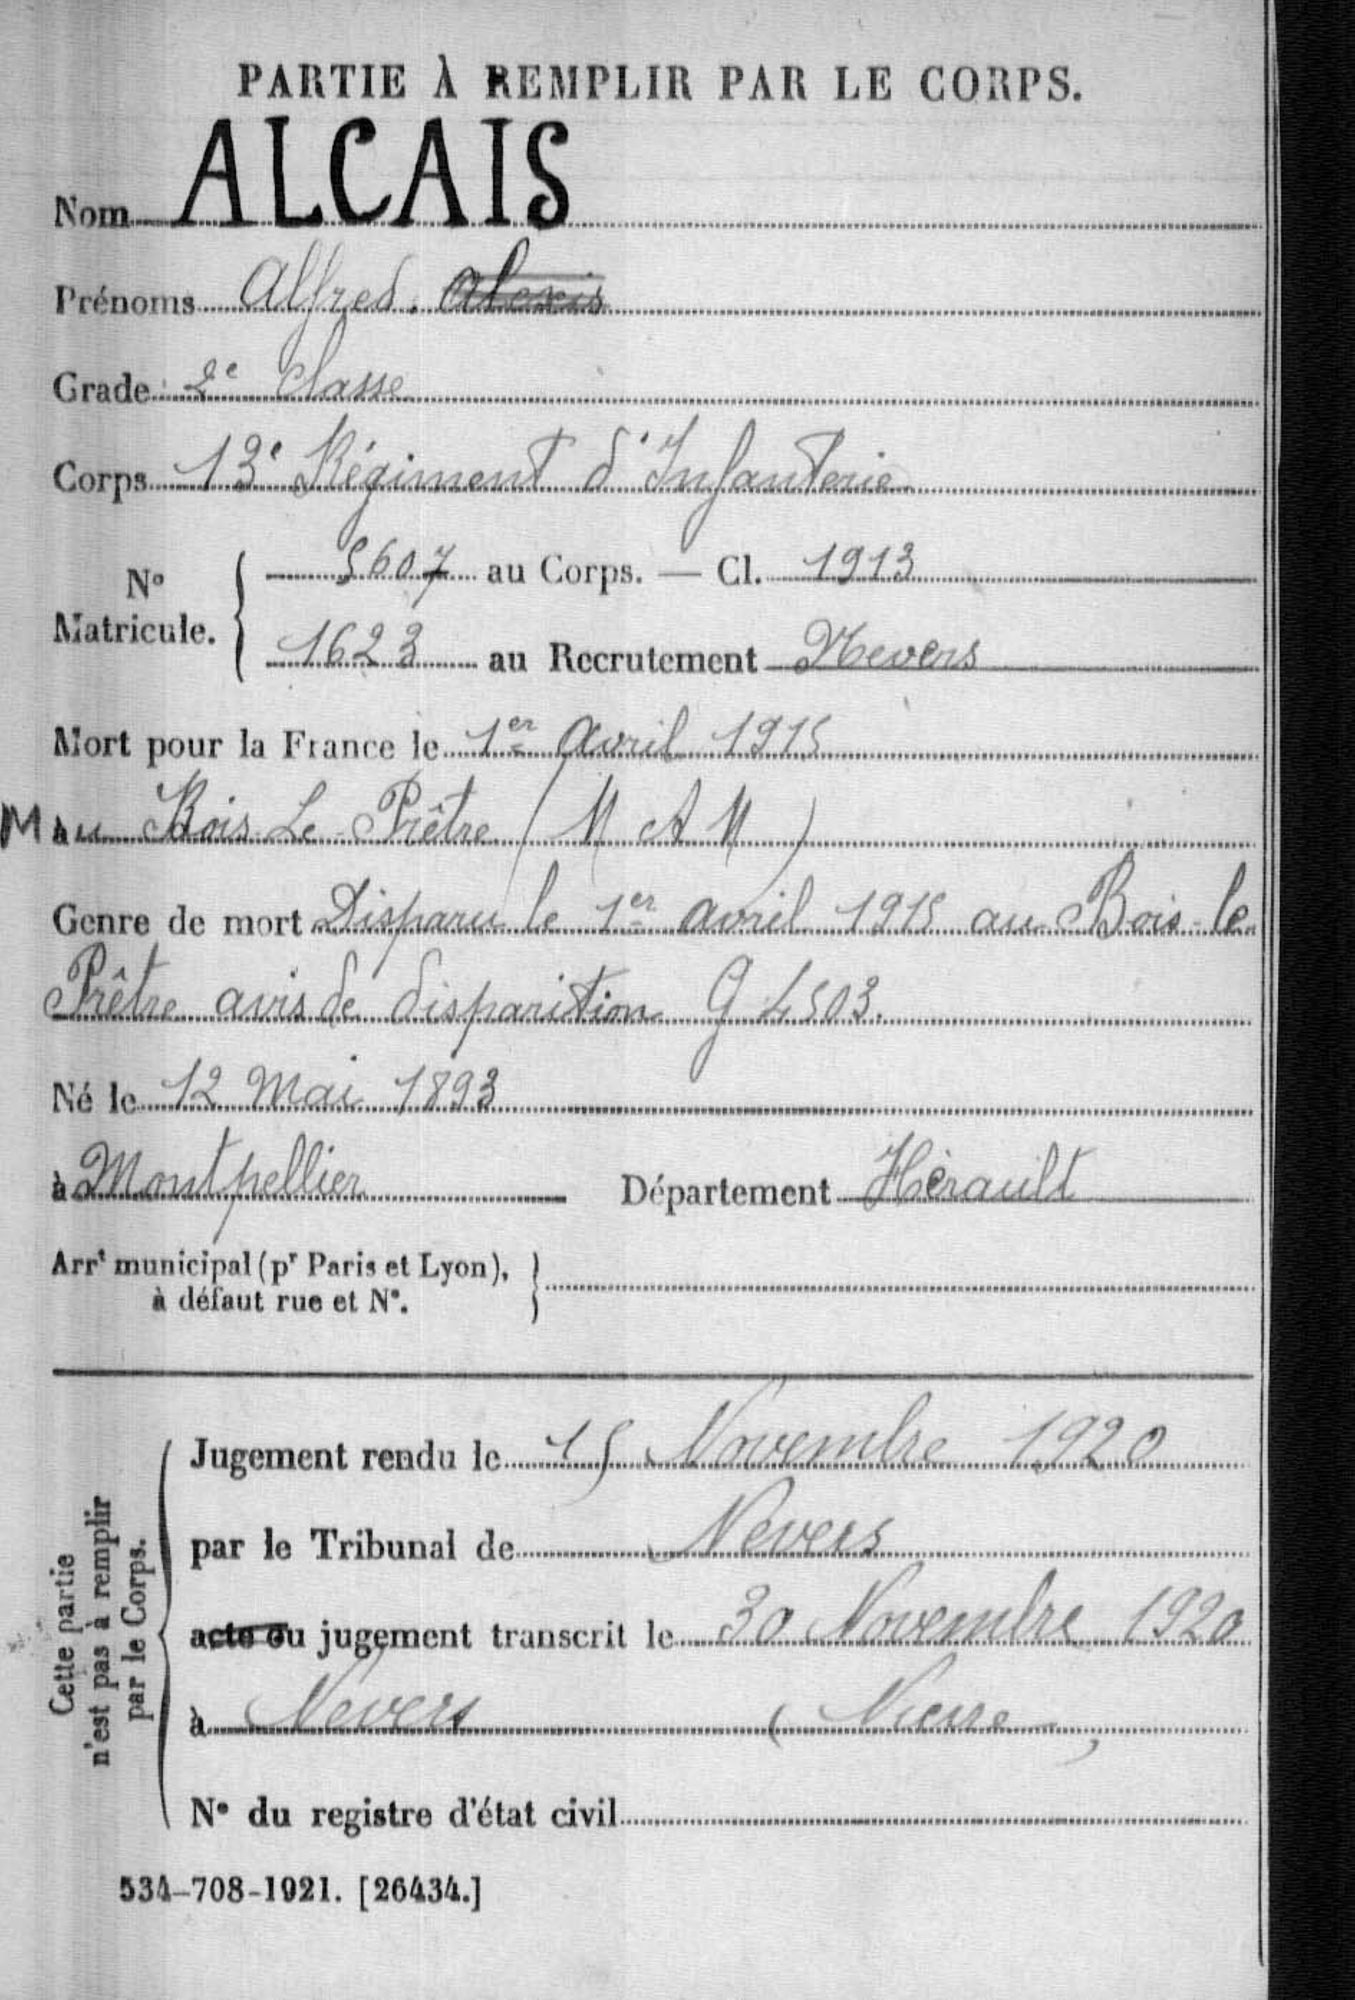 PARTIE À REMPLIR PAR LE CORPS.
Nom ALCAIS
Prénoms Alfred. Alexis
Grade 2e Classe
Corps 13e Régiment d'Infanterie
No Matricule. { 5607 au Corps. — Cl. 1913
1623 au Recrutement Nevers
Mort pour la France le 1er avril 1915
M au Bois-Le-Prêtre (M et M)
Genre de mort Disparu le 1er avril 1915 au Bois-le
Prêtre avis de disparition G 4503.
Né le 12 Mai 1893
à Montpellier Département Hérault
Arrt municipal (pr Paris et Lyon), }
à défaut rue et No.
Cette partie
n'est pas à remplir
par le Corps.
Jugement rendu le 15 Novembre 1920
par le Tribunal de Nevers
acte ou jugement transcrit le 30 Novembre 1920
à Nevers (Nièvre)
No du registre d'état civil
534-708-1921. [26434.]